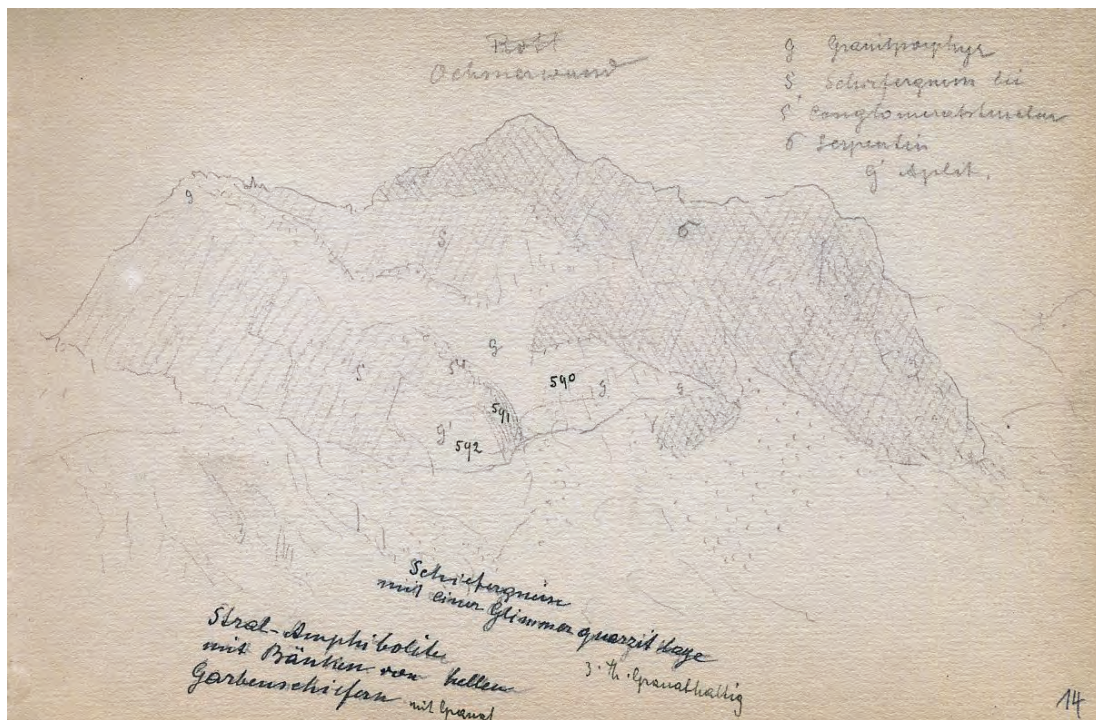 g Granitporphyr
S. Schiefergneiss bei
S' Conglomeratstructur
σ Serpentin
g' Aplit.
g
S
σ
g
S
S'
590
g
g
591
g'
592
Schiefergneise
mit einer Glimmerquarzitlage
z. Th. Granathaltig
Stral-Amphibolite
mit Bänken von hellen
Garbenschiefern mit Granat
14